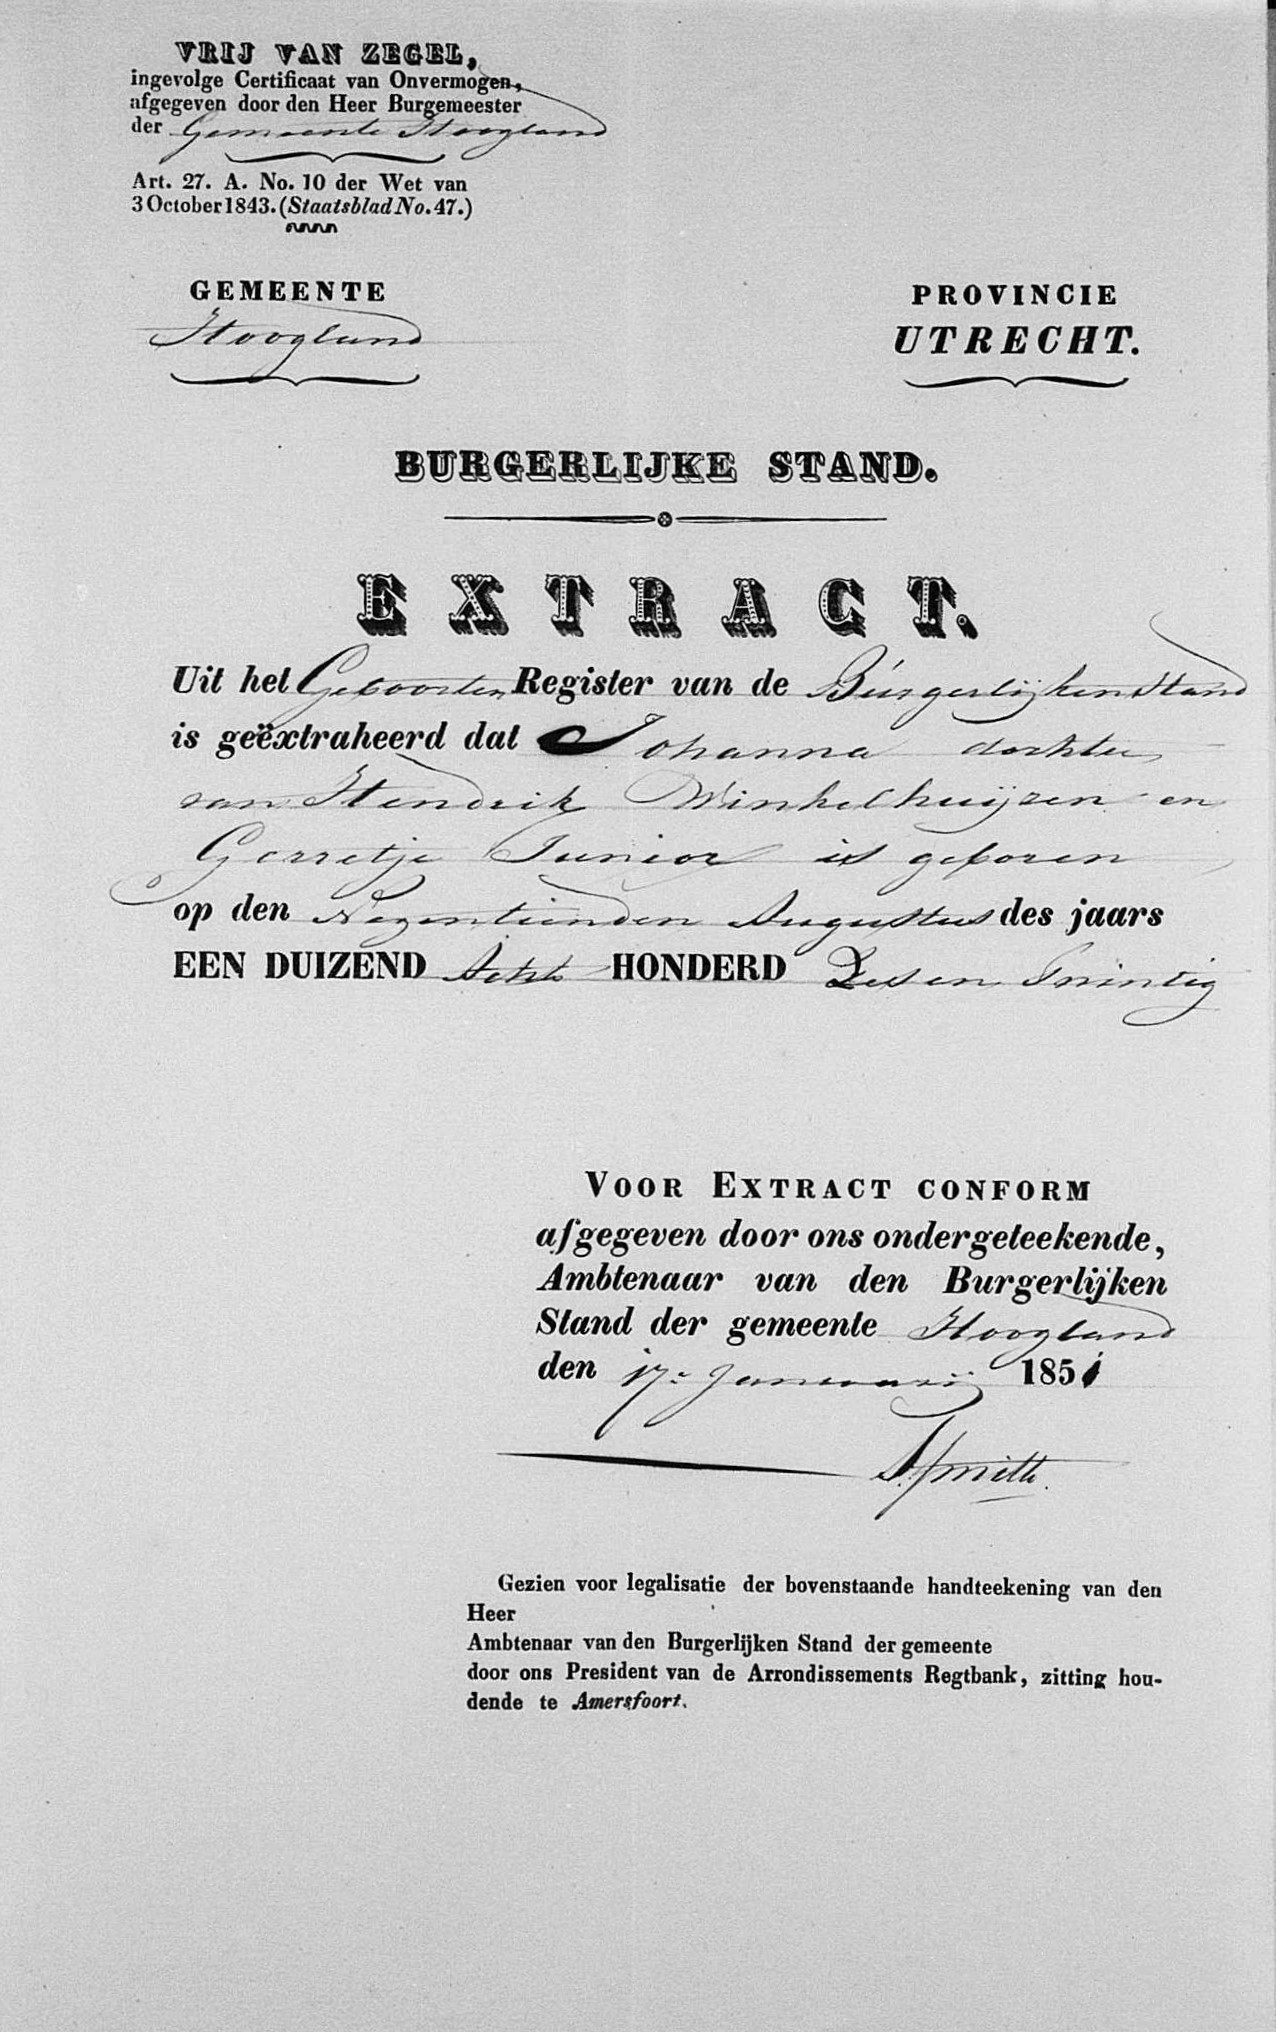 VRIJ VAN ZEGEL,
ingevolge Certificaat van Onvermogen,
afgegeven door den Heer Burgemeester
der Gemeente Hoogland
Art. 27. A. No. 10 der Wet van
3 October 1843. (Staatsblad No. 47.)
GEMEENTE
Hoogland
PROVINCIE
UTRECHT.
BURGERLIJKE STAND.
EXTRACT.
Uit het Geboorten Register van de Burgerlijken Stand
is geëxtraheerd dat Johanna dochter
van Hendrik Winkelhuijzen en
Gerretje Junior is geboren
op den Negentienden Augustus des jaars
EEN DUIZEND Acht HONDERD Zes en Twintig
VOOR EXTRACT CONFORM
afgegeven door ons ondergeteekende,
Ambtenaar van den Burgerlijken
Stand der gemeente Hoogland
den 17e Januarij 1851
Smitt.
Gezien voor legalisatie der bovenstaande handteekening van den
Heer
Ambtenaar van den Burgerlijken Stand der gemeente
door ons President van de Arrondissements Regtbank, zitting hou-
dende te Amersfoort.